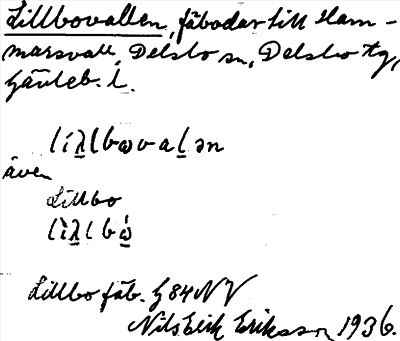 Lillbovallen, fäbodar till Ham-
marsvall, Delsbo sn, Delsbo tg,
Gävleb. l.
även
Lillbo
Lillbo fäb. G 84 NV
Nils Erik Eriksson 1936.